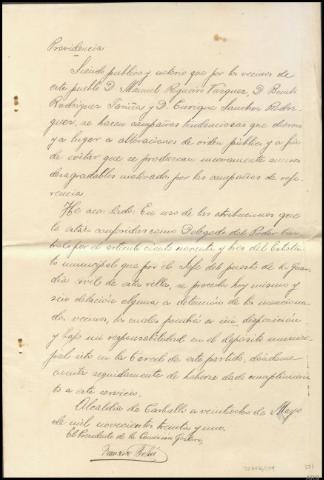 Providencia
Siendo publico y notorio que por los vecinos de
este pueblo D. Manuel Regueiro Vazquez, D. Benito
Rodriguez Fariña y D. Enrique Sanchez Rodri-
guez, se hacen campañas tendenciosas que dieron
ya lugar a alteraciones de orden público y a fin
de evitar que se produzcan nuevamente sucesos
desagradables motivados por las campañas de refe-
rencia
He acordado: En uso de las atribuciones que
le estan conferidas como Delegado del Poder Cen-
tral por el articulo ciento noventa y tres del Estatu-
to municipal que por el Jefe del puesto de la Guar-
dia civil de esta villa, se proceda hoy mismo y
sin dilacion alguna a detencion de los menciona-
dos vecinos, los cuales pondrá a mi disposición
y bajo mi responsabilidad en el deposito munici-
pal sito en la Carcel de este partido, dándome
cuenta seguidamente de haberse dado cumplimien-
to a este servicio.
Alcaldia de Carballo a veintiocho de Mayo
de mil novecientos treinta y uno.
El Presidente de la Comision Gestora,